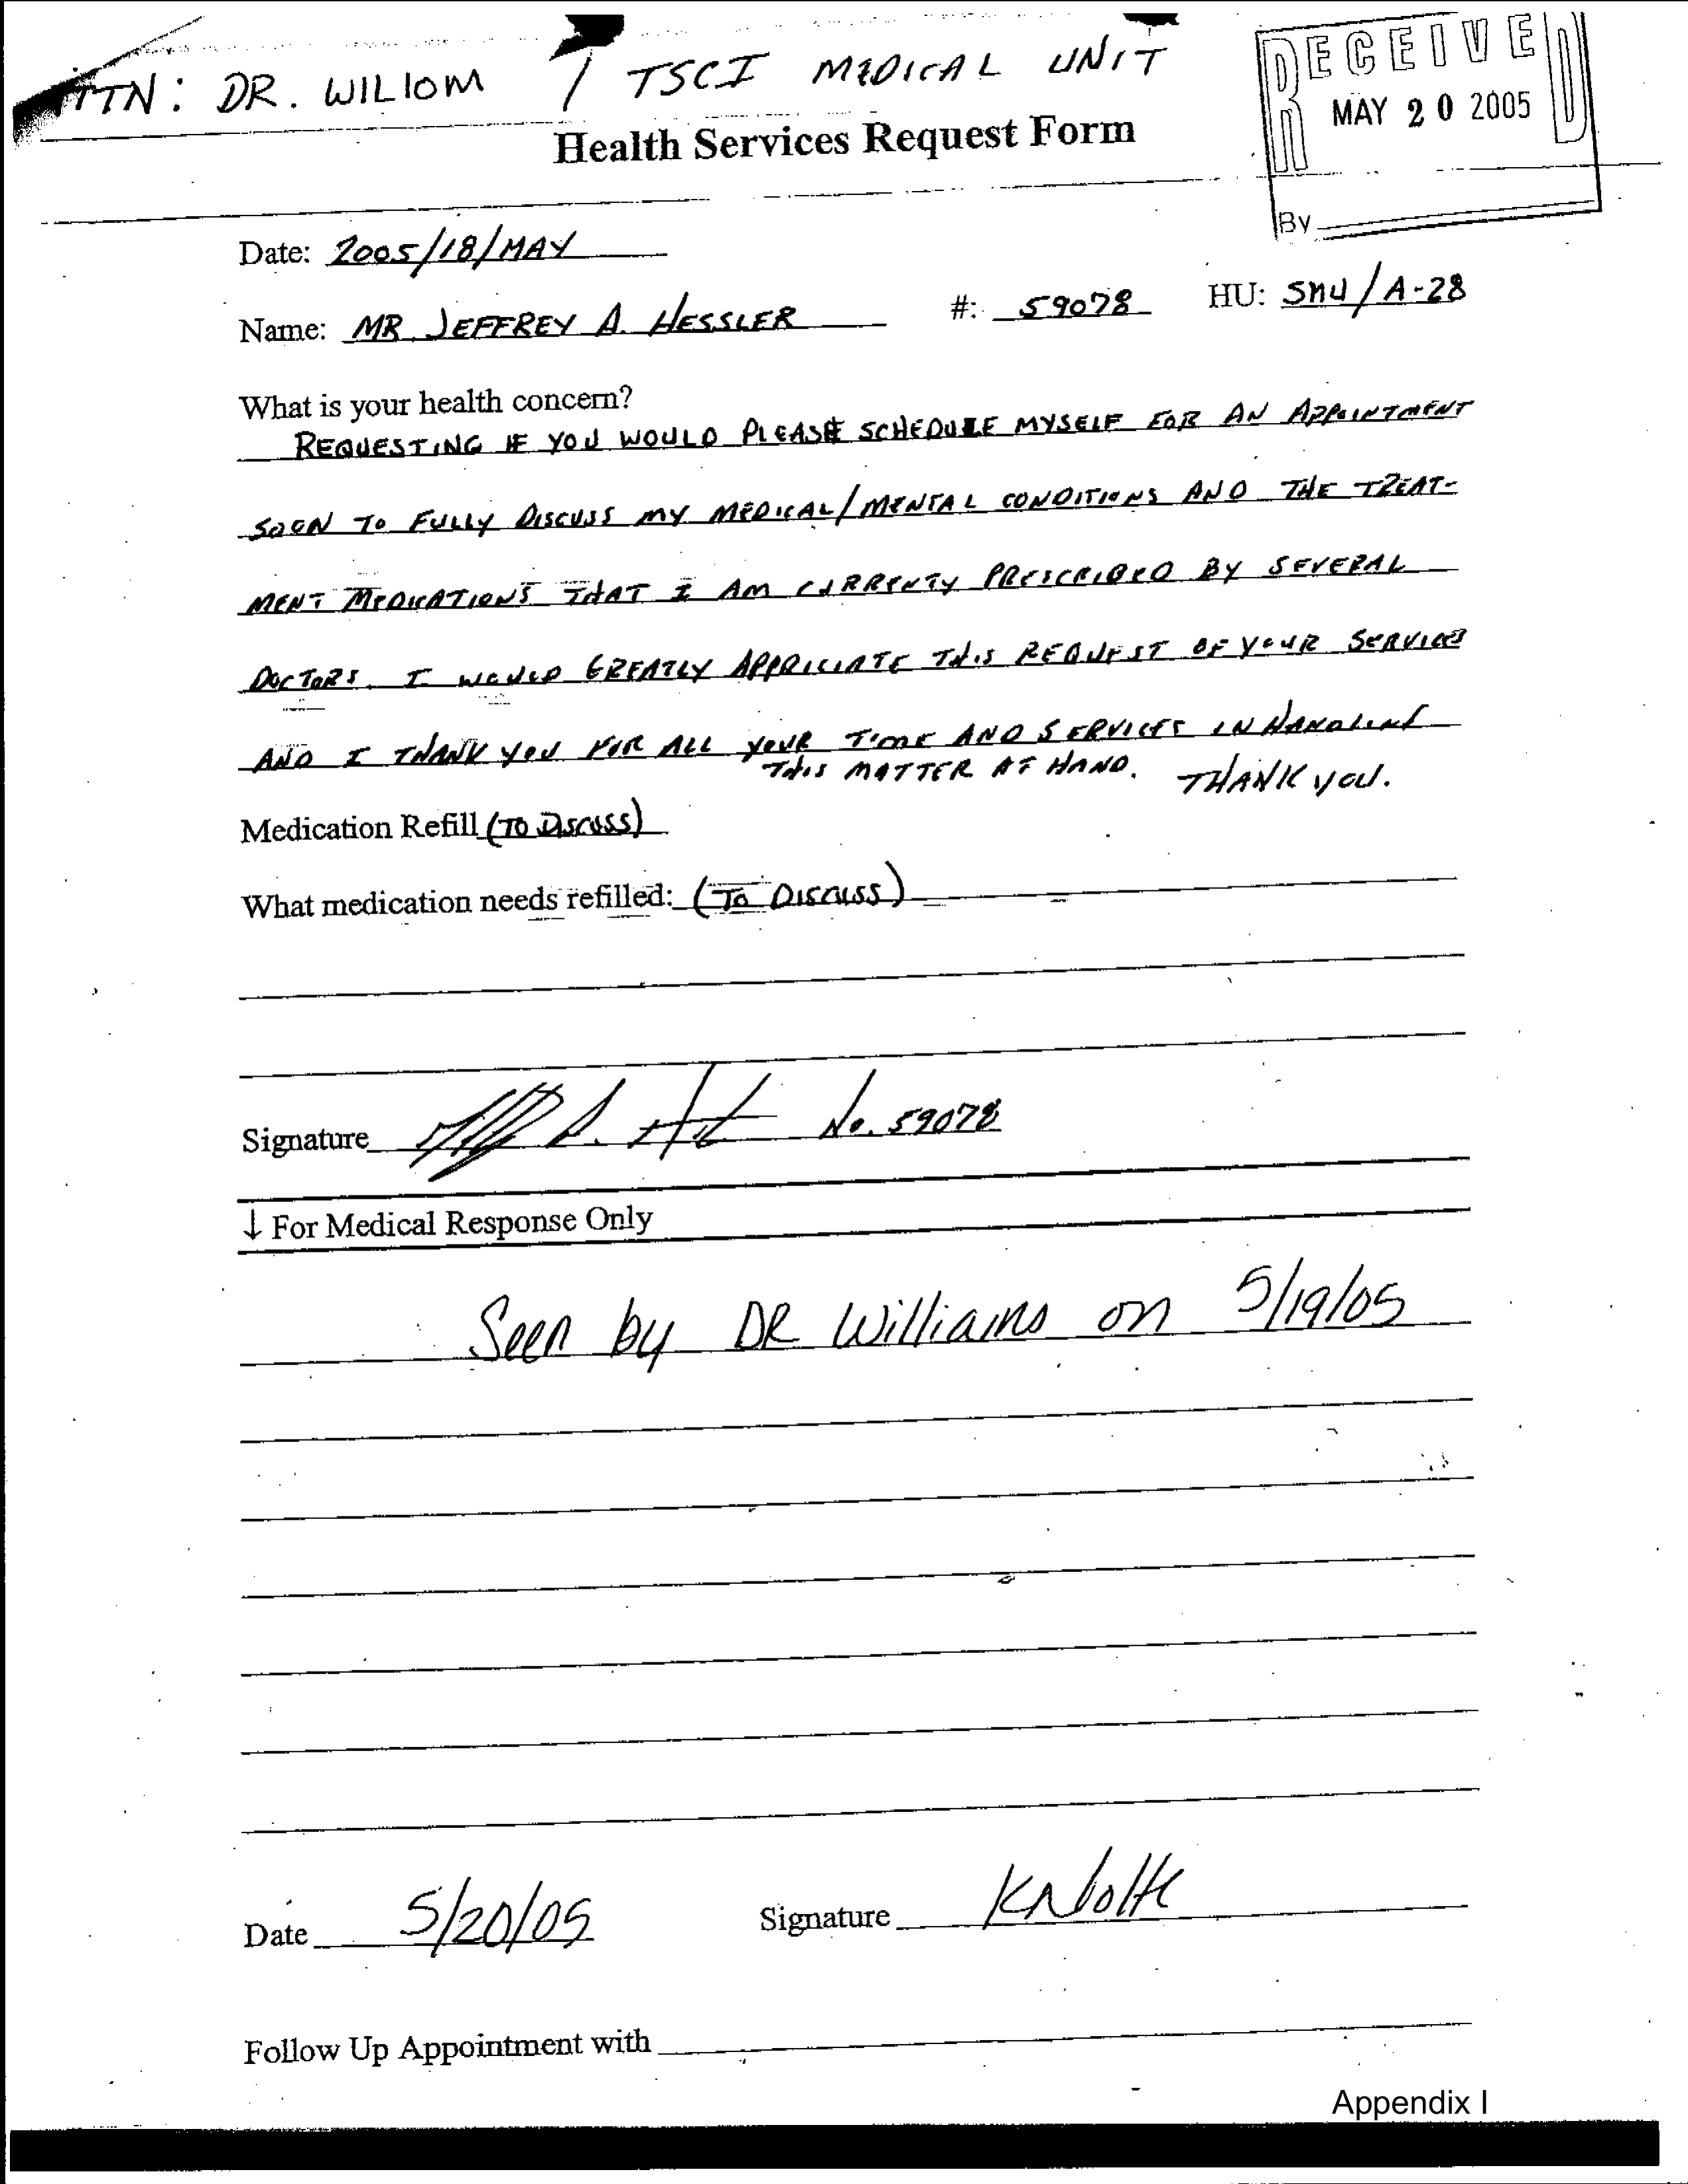 ATTN: DR. WILLOM / TSCI MEDICAL UNIT
RECEIVED
MAY 20 2005
By
Health Services Request Form
Date: 2005/18/MAY
Name: MR. JEFFREY A. HESSLER #: 59078 HU: SMU/A-28
What is your health concern?
REQUESTING IF YOU WOULD PLEASE SCHEDULE MYSELF FOR AN APPOINTMENT
SOON TO FULLY DISCUSS MY MEDICAL/MENTAL CONDITIONS AND THE TREAT-
MENT MEDICATIONS THAT I AM CURRENTY PRESCRIBED BY SEVERAL
DOCTORS. I WOULD GREATLY APPRICIATE THIS REQUEST OF YOUR SERVICES
AND I THANK YOU FOR ALL YOUR TIME AND SERVICES IN HANDLING
THIS MATTER AT HAND. THANK YOU.
Medication Refill (TO DISCUSS)
What medication needs refilled: (TO DISCUSS)
Signature No. 59078
↓ For Medical Response Only
Seen by DR Williams on 5/19/05
Date 5/20/05 Signature KNolte
Follow Up Appointment with
Appendix I